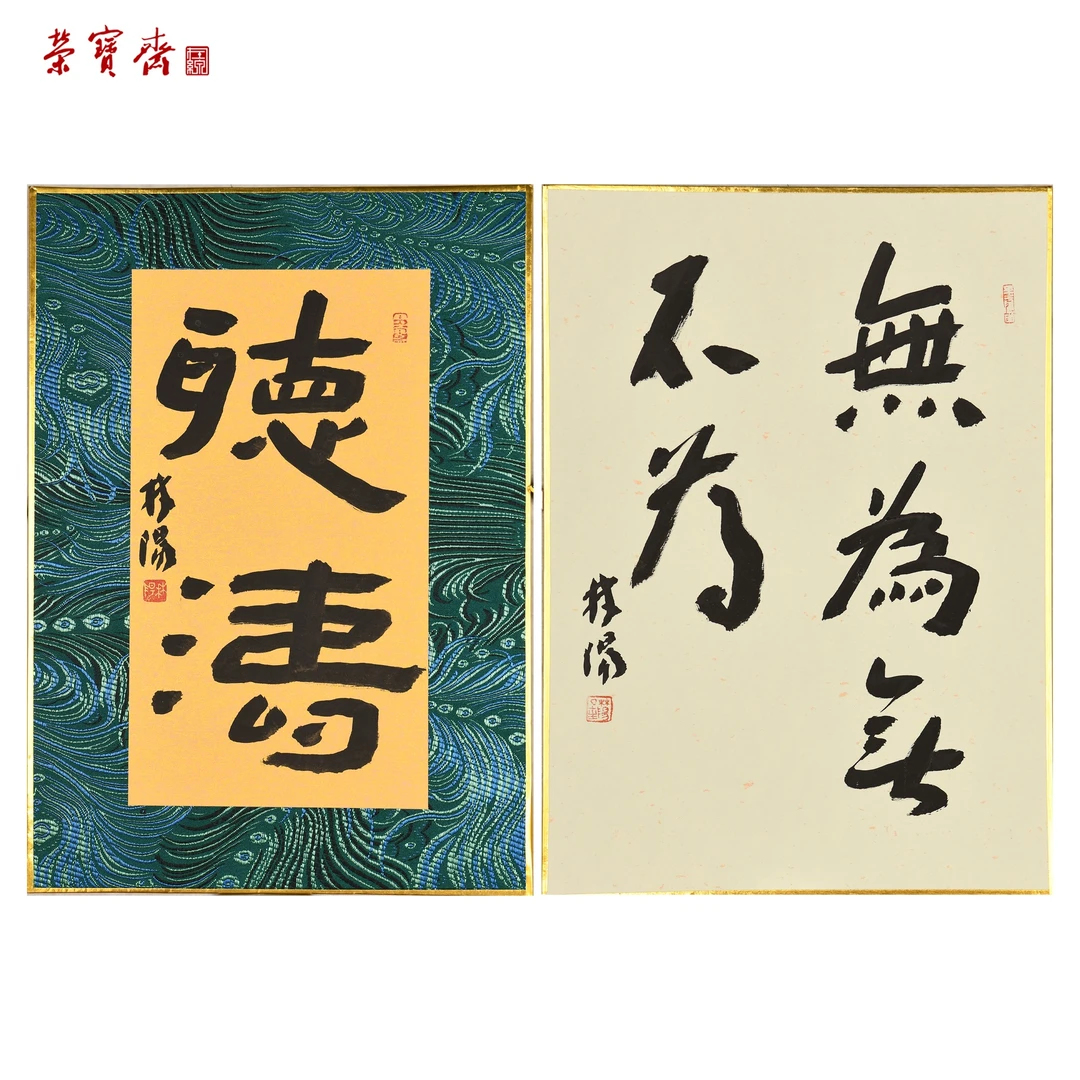 榮寶齋
聽濤
林陽
無為無
不為
林陽